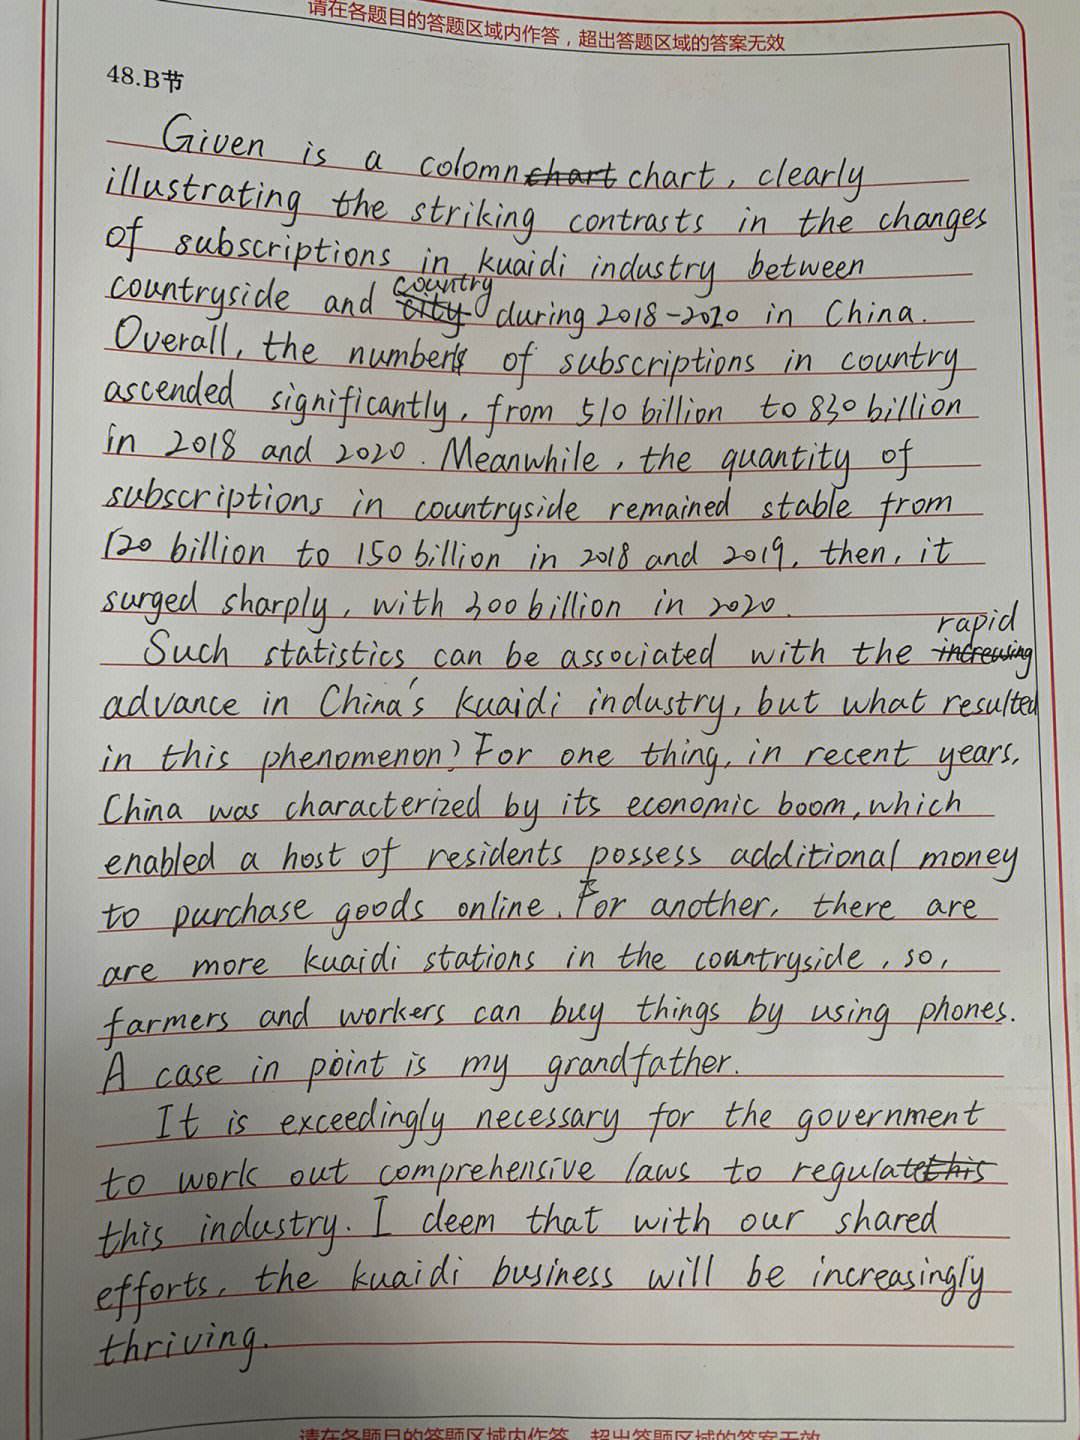 请在各题目的答题区域内作答，超出答题区域的答案无效
48.B节
Given is a colomn chart chart, clearly
illustrating the striking contrasts in the changes
of subscriptions in kuaidi industry between
countryside and city country during 2018-2020 in China.
Overall, the number of subscriptions in country
ascended significantly, from 510 billion to 830 billion
in 2018 and 2020. Meanwhile, the quantity of
subscriptions in countryside remained stable from
120 billion to 150 billion in 2018 and 2019, then, it
surged sharply, with 300 billion in 2020.
Such statistics can be associated with the increasing rapid
advance in China's kuaidi industry, but what resulted
in this phenomenon? For one thing, in recent years,
China was characterized by its economic boom, which
enabled a host of residents possess additional money
to purchase goods online. For another, there are
are more kuaidi stations in the countryside, so,
farmers and workers can buy things by using phones.
A case in point is my grandfather.
It is exceedingly necessary for the government
to work out comprehensive laws to regulate this
this industry. I deem that with our shared
efforts, the kuaidi business will be increasingly
thriving.
请在各题目的答题区域内作答，超出答题区域的答案无效